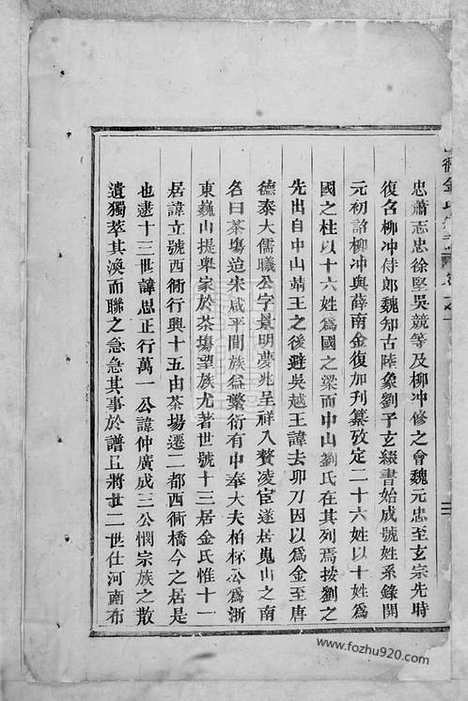 忠蕭志忠徐堅吳競等及柳冲修之會魏元忠至玄宗先時
復含柳冲侍郎魏知古陸象劉子玄綴書始成號姓系錄開
元初詔柳冲與薛南金復加刋纂攷定二十六姓以十姓爲
國之柱以十六姓爲國之梁而中山劉氏在其列焉按劉之
先出自中山靖王之後避吳越王諱去卯刀因以爲金至唐
德泰大儒曦公字景明夢兆呈祥入贅凌宦遂居嵬山之南
名曰茶塲迨宋咸平間族益繁衍有中奉大夫柏杯公爲浙
東巍山提舉家於茶塲望族尤著世號十三居金氏惟十一
居諱立號西衕行興十五由茶場遷二都西衕橋今之居是
也逮十三世諱思正行萬一公諱仲廣成三公憫宗族之散
遺獨萃其渙而聯之急急其事於譜且將廿二世仕河南布
www.fozhu920.com